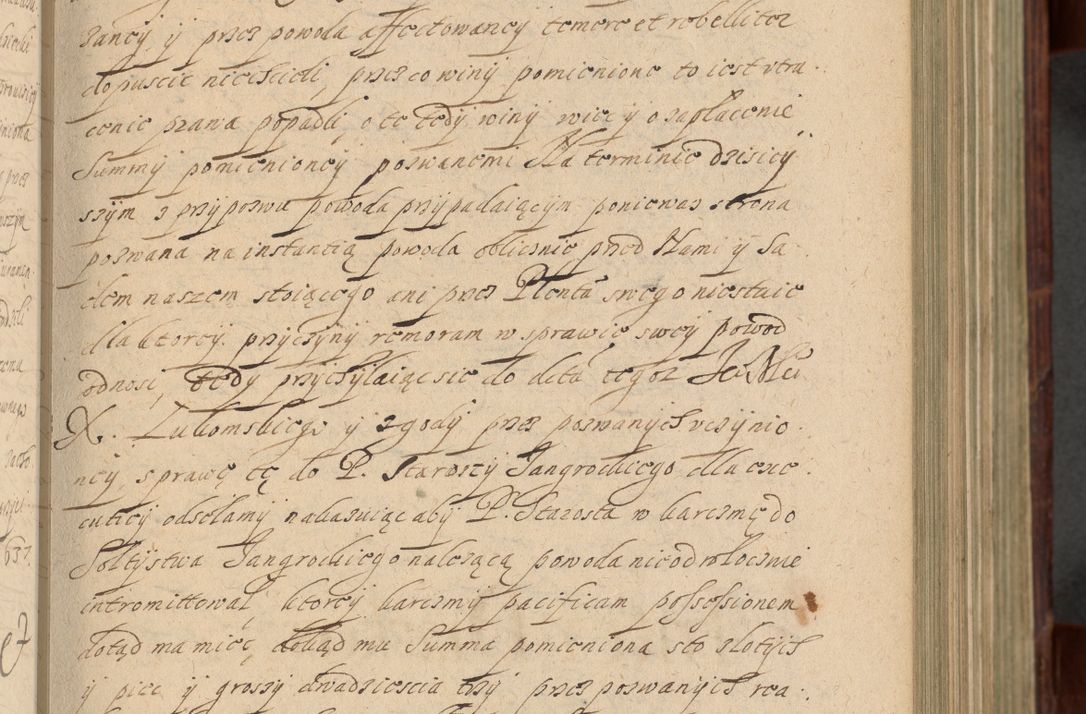 zaney, y przez powoda affectowaney temere et rebelliter
dopuscic niechcieli, przez co winy pomienione to iest vtra-
cenie prawa popadli o te tedy winy wiec y o zapłacenie
Summy pomienioney pozwanemi Na terminie dzisiey-
szym z przypozwu powoda przypadaiącym poniewaz strona
pozwana na instantią powoda oblicznie przed Nami y Są-
dem naszem stoiącego ani przez Plenta swego niestaie
dla ktorey przyczyny remoram w sprawie swey powod
odnosi, tedy przychylaiąc sie do dctu tegoz Je Mci
X. Lubomskiego y zgody przez pozwanych vczynio-
ney, sprawę tę do P. Starosty Jangrodkiego dla exe-
cutiey odsełamy nakazuiąc aby P. Starosta w karczmę do
Sołtystwa Jangrodkiego nalezącą powoda nieodwłocznie
intromittował, ktorey karczmy pacificam possessionem
dotąd ma miec, dokąd mu Summa pomieniona sto złotych
y piec y groszy dwadziescia trzy przez pozwanych rea-